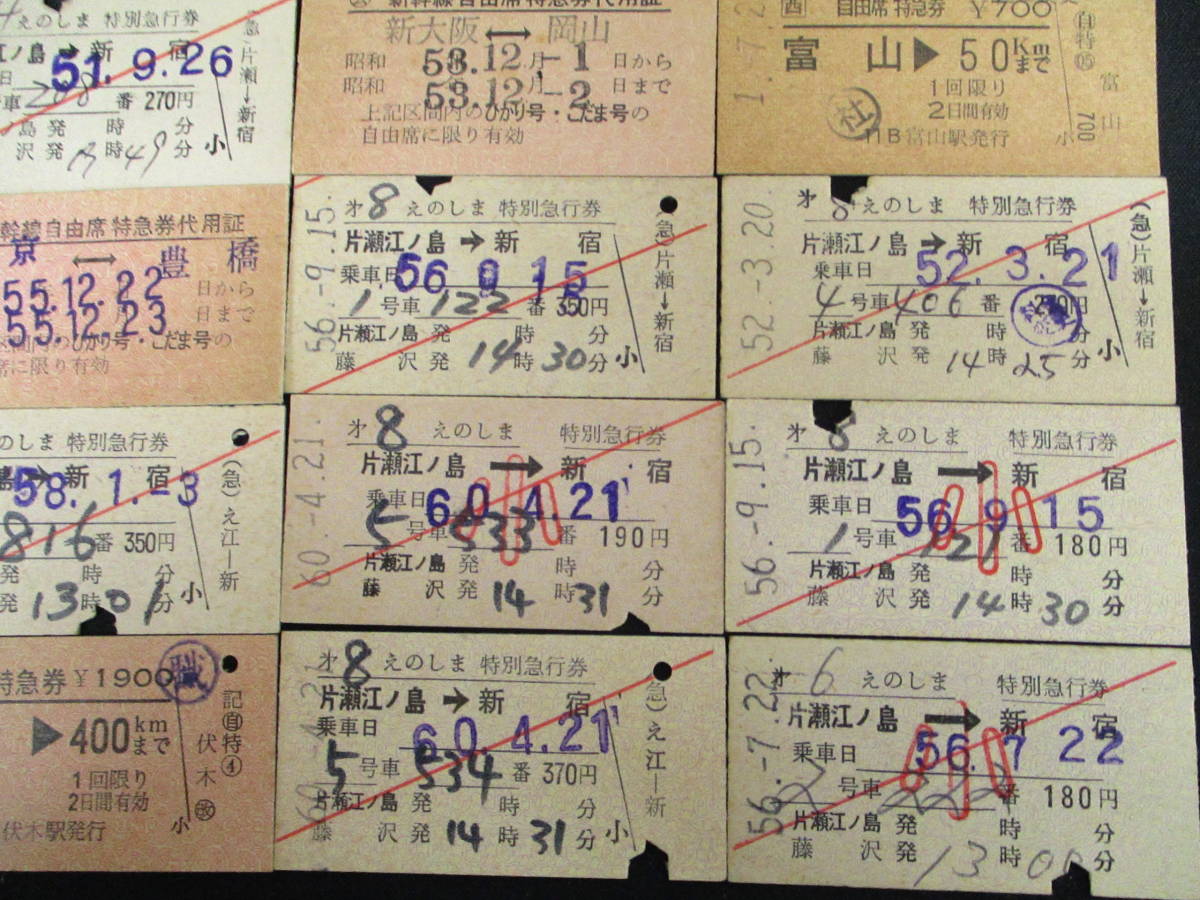 えのしま 特別急行券
新 宿
51.9.26
番 270円
発 時 分
沢 発 時 49 分
小
片瀬→新宿
新幹線自由席特急券代用証
新大阪 ↔ 岡山
昭和 53.12月-1日から
昭和 53.12月-2日まで
上記区間内のひかり号・こだま号の
自由席に限り有効
自由席 特急券 ¥700
富山 ▶ 50Kmまで
1回限り
2日間有効
富山駅発行
社
自特05
富山
小 700
幹線自由席 特急券代用証
京 ↔ 豊橋
55.12.22 日から
55.12.23 日まで
のひかり号・こだま号の
席に限り有効
56.-9.15.
㐧8 えのしま 特別急行券
片瀬江ノ島 → 新宿
乗車日 56 9 15
1号車 122番 350円
片瀬江ノ島 発 時 分
藤沢 発 14時30分
小
(急)片瀬→新宿
52.-3.20.
㐧8 えのしま 特別急行券
片瀬江ノ島 → 新宿
乗車日 52.3.21
4号車 406番
片瀬江ノ島 発 時 分
藤沢 発 14時25分
小
(急)片瀬→新宿
えのしま 特別急行券
島 → 新宿
58.1.-3
816番 350円
発 時 分
発 13時01分
小
(急)え江—新
60.-4.21.
㐧8 えのしま 特別急行券
片瀬江ノ島 → 新宿
乗車日 60.4.21
5号車 533番 190円
片瀬江ノ島 発 時 分
藤沢 発 14時31分
56.-9.15.
㐧8 えのしま 特別急行券
片瀬江ノ島 → 新宿
乗車日 56 9 15
1号車 121番 180円
片瀬江ノ島 発 時 分
藤沢 発 14時30分
特急券 ¥1900
職
▶ 400kmまで
1回限り
2日間有効
伏木駅発行
小
記自特4
伏木
60.-4.21
㐧8 えのしま 特別急行券
片瀬江ノ島 → 新宿
乗車日 60.4.21
5号車 534番 370円
片瀬江ノ島 発 時 分
藤沢 発 14時31分
小
(急)え江—新
56.-7.22.
㐧6 えのしま 特別急行券
片瀬江ノ島 → 新宿
乗車日 56.7 22
2号車 222番 180円
片瀬江ノ島 発 時 分
藤沢 発 13時00分